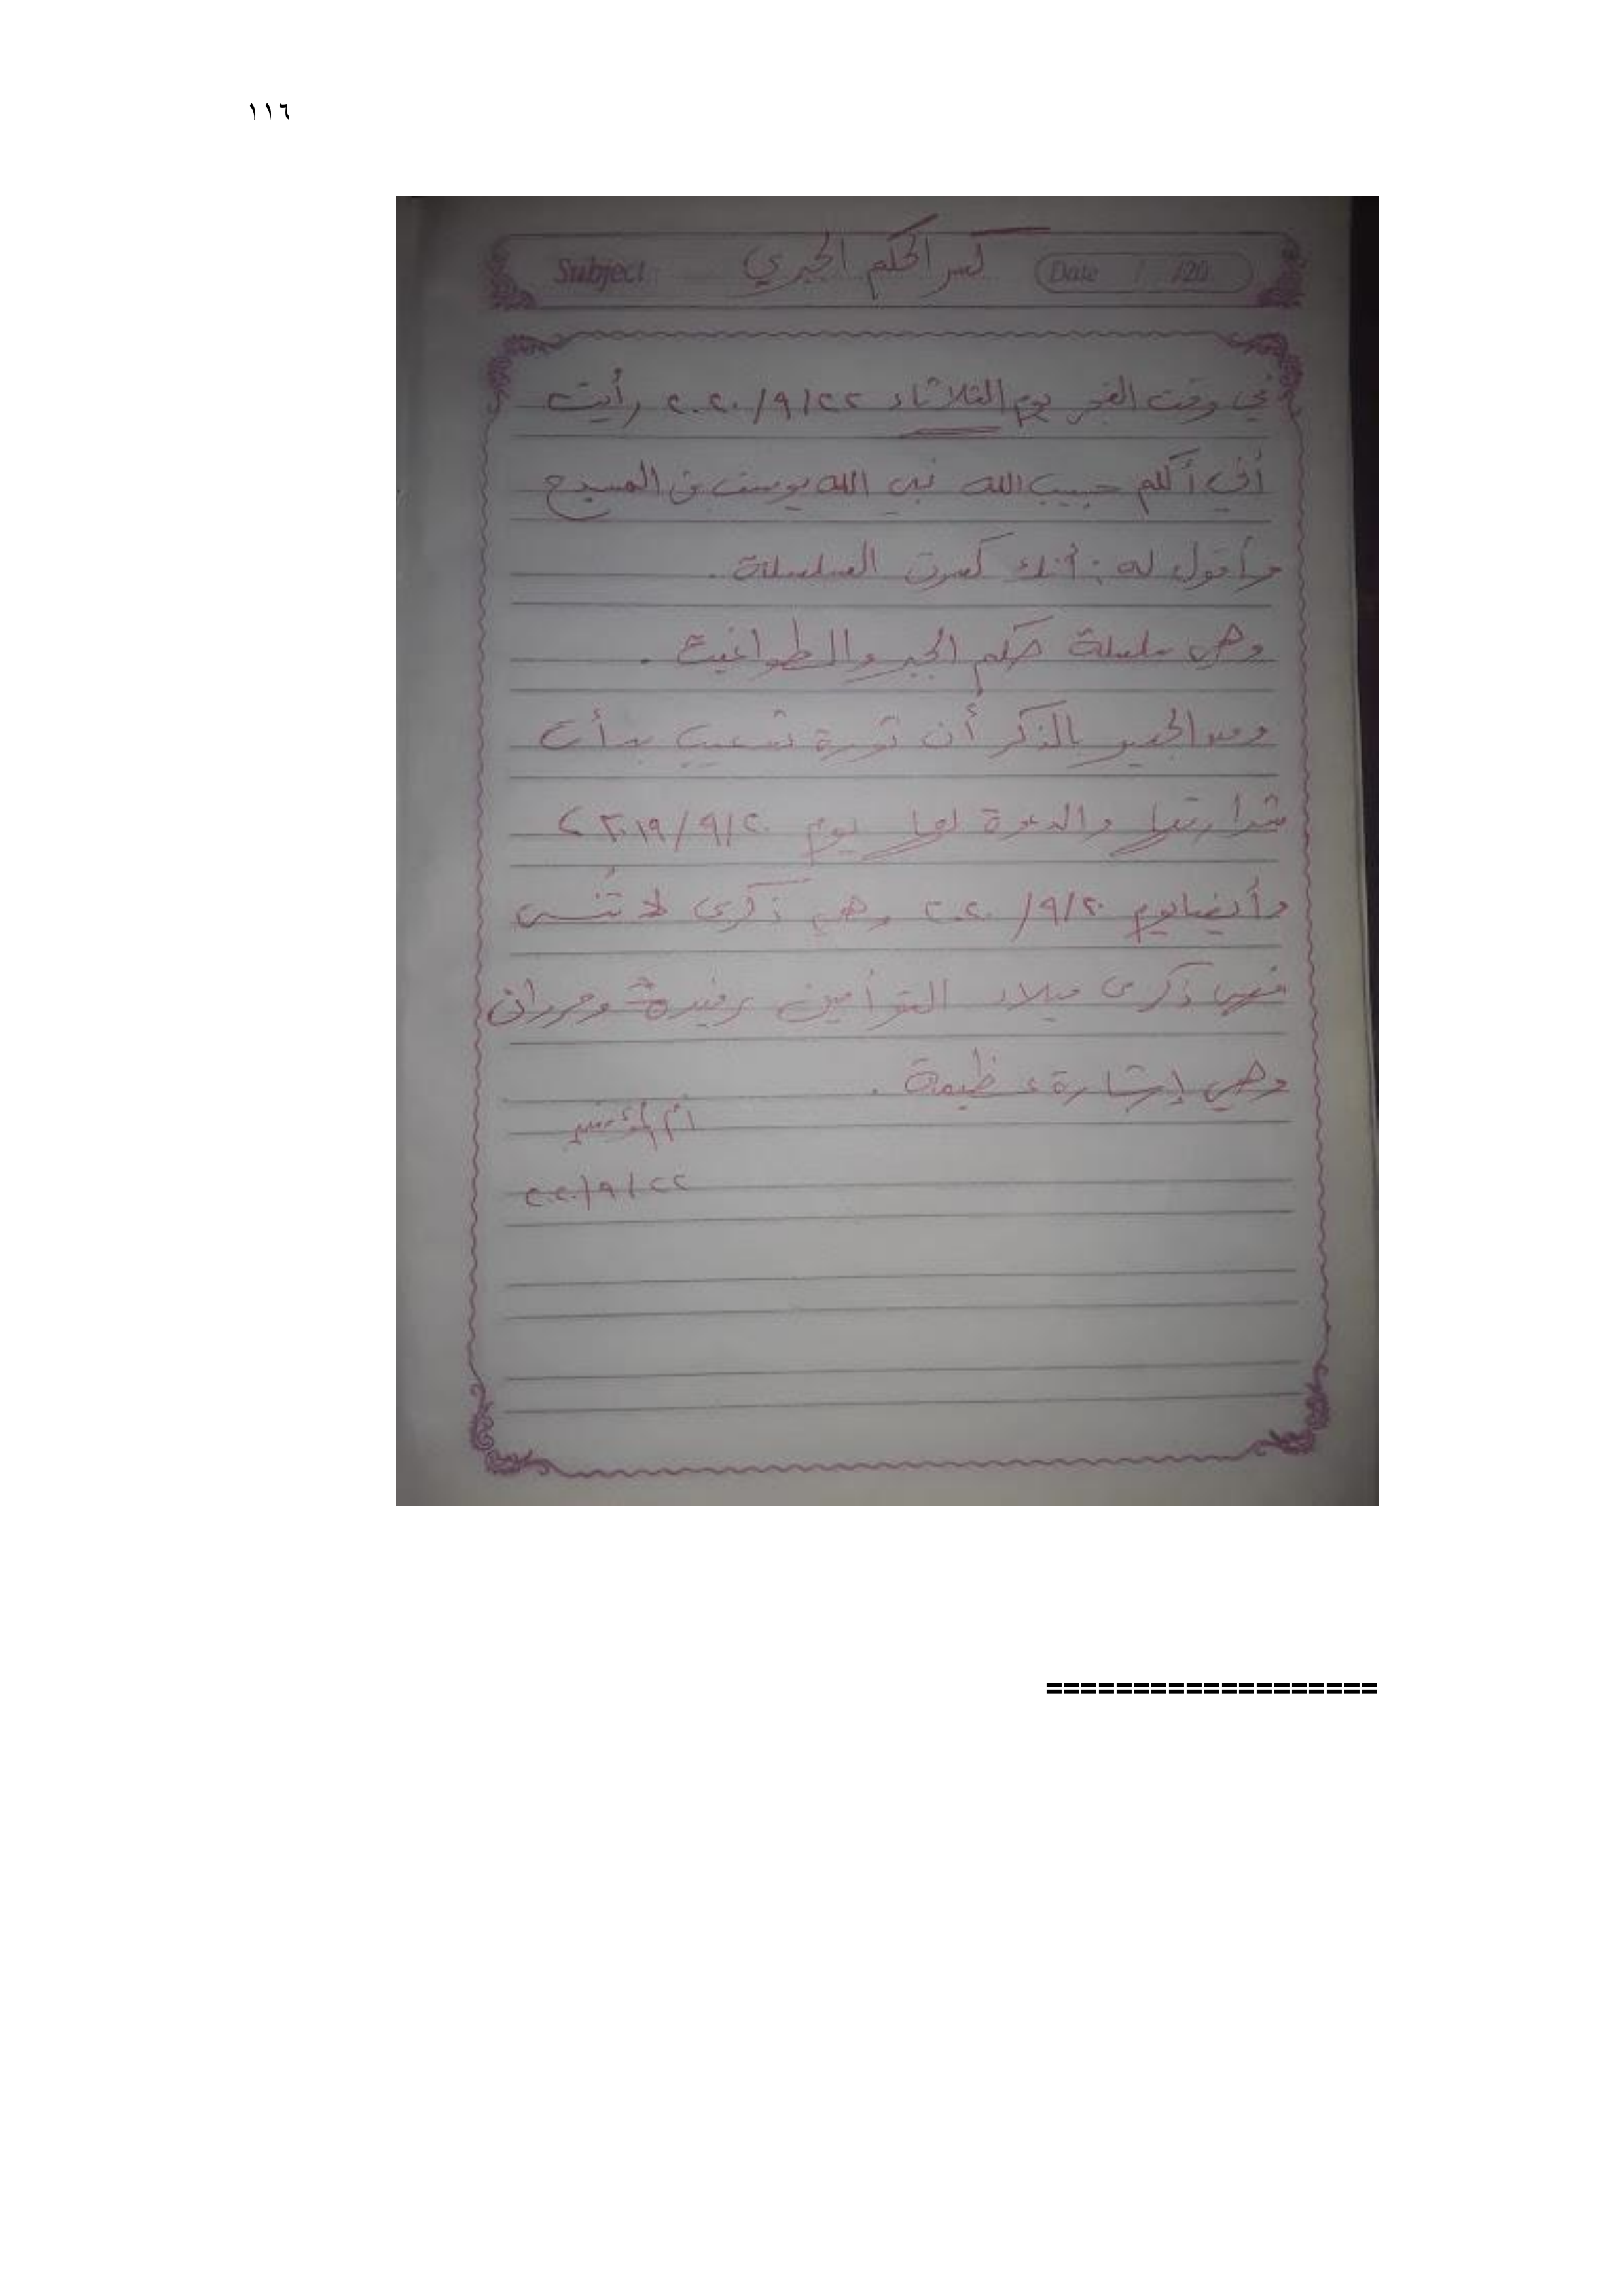 ١١٦
Subject كسر الحكم الجبري Date / /20
في وقت الفجر يوم الثلاثاء ٢٢/٩/٢٠٢٠ رأيت
أني أكلم حبيب الله نبي الله يوسف بن المسيح
وأقول له : أنك كسرت السلسلة .
وهي سلسلة حكم الجبر والطواغيت .
ومن الجدير بالذكر أن ثورة شعيب بدأت
شرارتها والدعوة لها يوم ٢٠/٩/٢٠١٩
وأيضا يوم ٢٠/٩/٢٠٢٠ وهي ذكرى لا تُنسى
فهي ذكرى ميلاد التوأمين رفيدة
وهي إشارة عظيمة .
أم المؤمنين
٢٢/٩/٢٠٢٠
===================